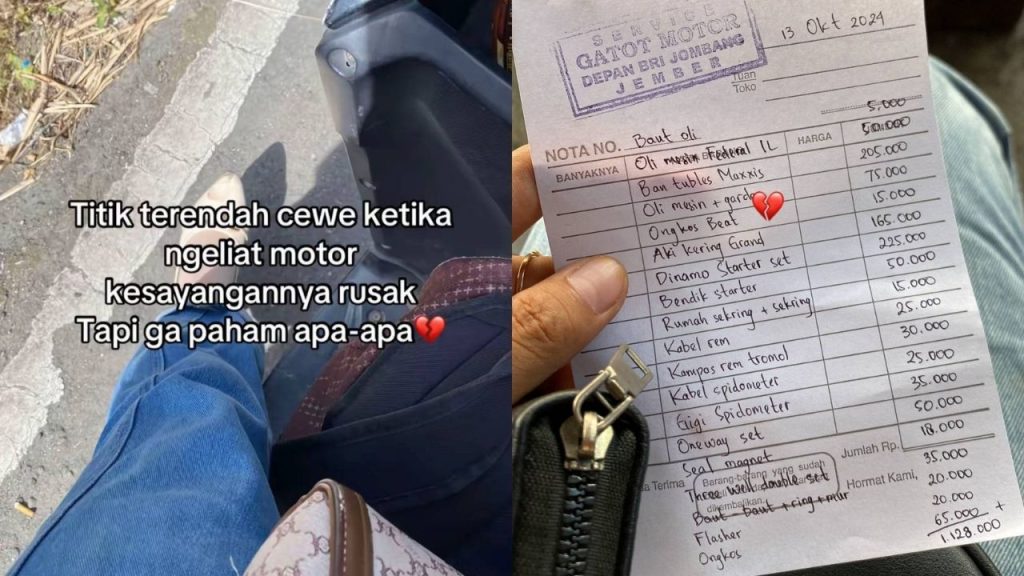 Titik terendah cewe ketika
ngeliat motor
kesayangannya rusak
Tapi ga paham apa-apa💔
SERVICE
GATOT MOTOR
DEPAN BRI JOMBANG
JEMBER
13 Okt 2024
Tuan
Toko
NOTA NO. Baut oli 5.000
BANYAKNYA HARGA
Oli mesin Federal 1L 50.000
Ban tubles Maxxis 205.000
Oli mesin + gard 75.000
Ongkos Beat 15.000
Aki Kering Grand 165.000
Dinamo Starter set 225.000
Bendik starter 50.000
Rumah sekring + sekring 15.000
Kabel rem 25.000
Kompos rem tromol 30.000
Kabel spidometer 25.000
Gigi Spidometer 35.000
Oneway set 50.000
Seal magnet 18.000
Jumlah Rp.
Terima Barang-barang yang sudah
dikembalikan. Hormat Kami,
Three well double set 35.000
Baut baut + ring + mur 20.000
Flasher 20.000
Ongkos 65.000 +
1.128.000